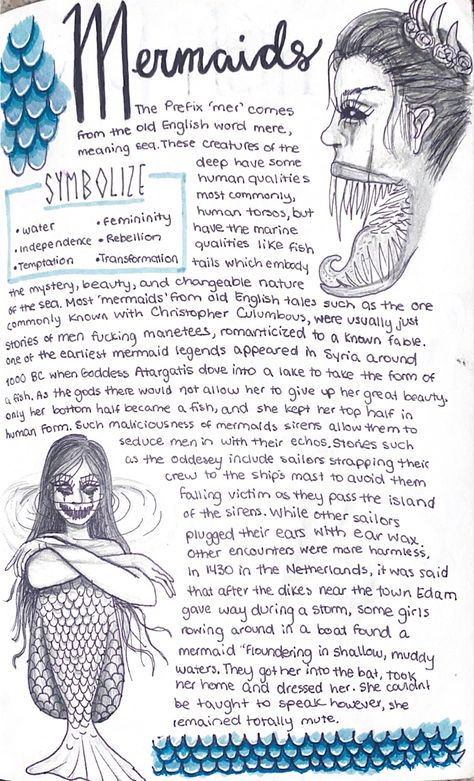 Mermaids
The Prefix 'mer' comes
from the old English word mere,
meaning sea. These creatures of the
deep have some
human qualities
most commonly,
human torsos, but
have the marine
qualities like fish
tails which embody
SYMBOLIZE
• water
• independence
• Temptation
• femininity
• Rebellion
• Transformation
the mystery, beauty, and changeable nature
of the sea. Most 'mermaids' from old English tales such as the one
commonly known with Christopher Culumbous, were usually just
stories of men fucking manetees, romanticized to a known fable.
one of the earliest mermaid legends appeared in Syria around
1000 BC when Goddess Atargatis dove into a lake to take the form of
a fish. As the gods there would not allow her to give up her great beauty,
only her bottom half became a fish, and she kept her top half in
human form. Such maliciousness of mermaids sirens allow them to
seduce men in with their echos. Stories such
as the oddesey include sailors strapping their
crew to the ship's mast to avoid them
falling victim as they pass the island
of the sirens. While other sailors
plugged their ears with ear wax.
Other encounters were more harmless,
In 1430 in the Netherlands, it was said
that after the dikes near the town Edam
gave way during a storm, some girls
rowing around in a boat found a
mermaid "floundering in shallow, muddy
waters. They got her into the bat, took
her home and dressed her. She couldnt
be taught to speak however, she
remained totally mute.